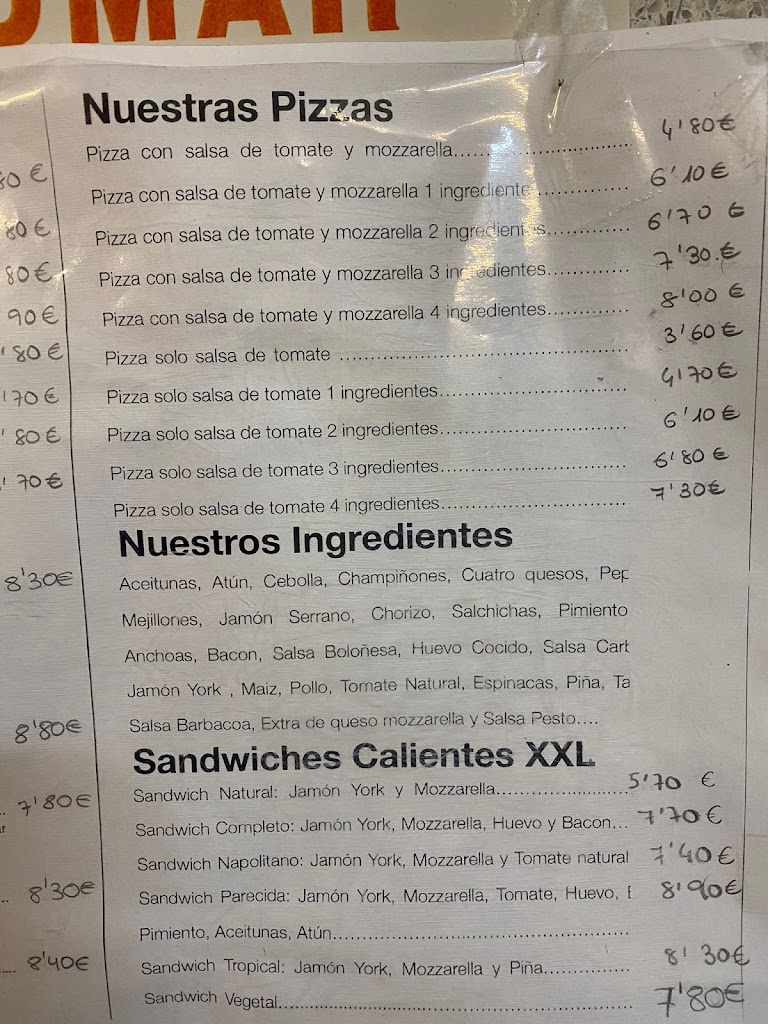 Nuestras Pizzas
Pizza con salsa de tomate y mozzarella.................................. 4'80€
Pizza con salsa de tomate y mozzarella 1 ingrediente................ 6'10€
Pizza con salsa de tomate y mozzarella 2 ingredientes.............. 6'70€
Pizza con salsa de tomate y mozzarella 3 ingredientes.............. 7'30.€
Pizza con salsa de tomate y mozzarella 4 ingredientes.............. 8'00€
Pizza solo salsa de tomate .................................................. 3'60€
Pizza solo salsa de tomate 1 ingredientes................................ 4'70€
Pizza solo salsa de tomate 2 ingredientes................................ 6'10€
Pizza solo salsa de tomate 3 ingredientes................................ 6'80€
Pizza solo salsa de tomate 4 ingredientes................................ 7'30€
Nuestros Ingredientes
Aceitunas, Atún, Cebolla, Champiñones, Cuatro quesos, Pep
Mejillones, Jamón Serrano, Chorizo, Salchichas, Pimiento
Anchoas, Bacon, Salsa Boloñesa, Huevo Cocido, Salsa Cart
Jamón York , Maiz, Pollo, Tomate Natural, Espinacas, Piña, Ta
Salsa Barbacoa, Extra de queso mozzarella y Salsa Pesto....
Sandwiches Calientes XXL
Sandwich Natural: Jamón York y Mozzarella....................... 5'70 €
Sandwich Completo: Jamón York, Mozzarella, Huevo y Bacon... 7'70€
Sandwich Napolitano: Jamón York, Mozzarella y Tomate natural 7'40€
Sandwich Parecida: Jamón York, Mozzarella, Tomate, Huevo, 8'90€
Pimiento, Aceitunas, Atún..................................................
Sandwich Tropical: Jamón York, Mozzarella y Piña............... 8'30€
Sandwich Vegetal............................................................ 7'80€
80 €
80€
80€
90€
'80€
'70€
'80€
'70€
8'30€
8'80€
7'80€
8'30€
8'40€